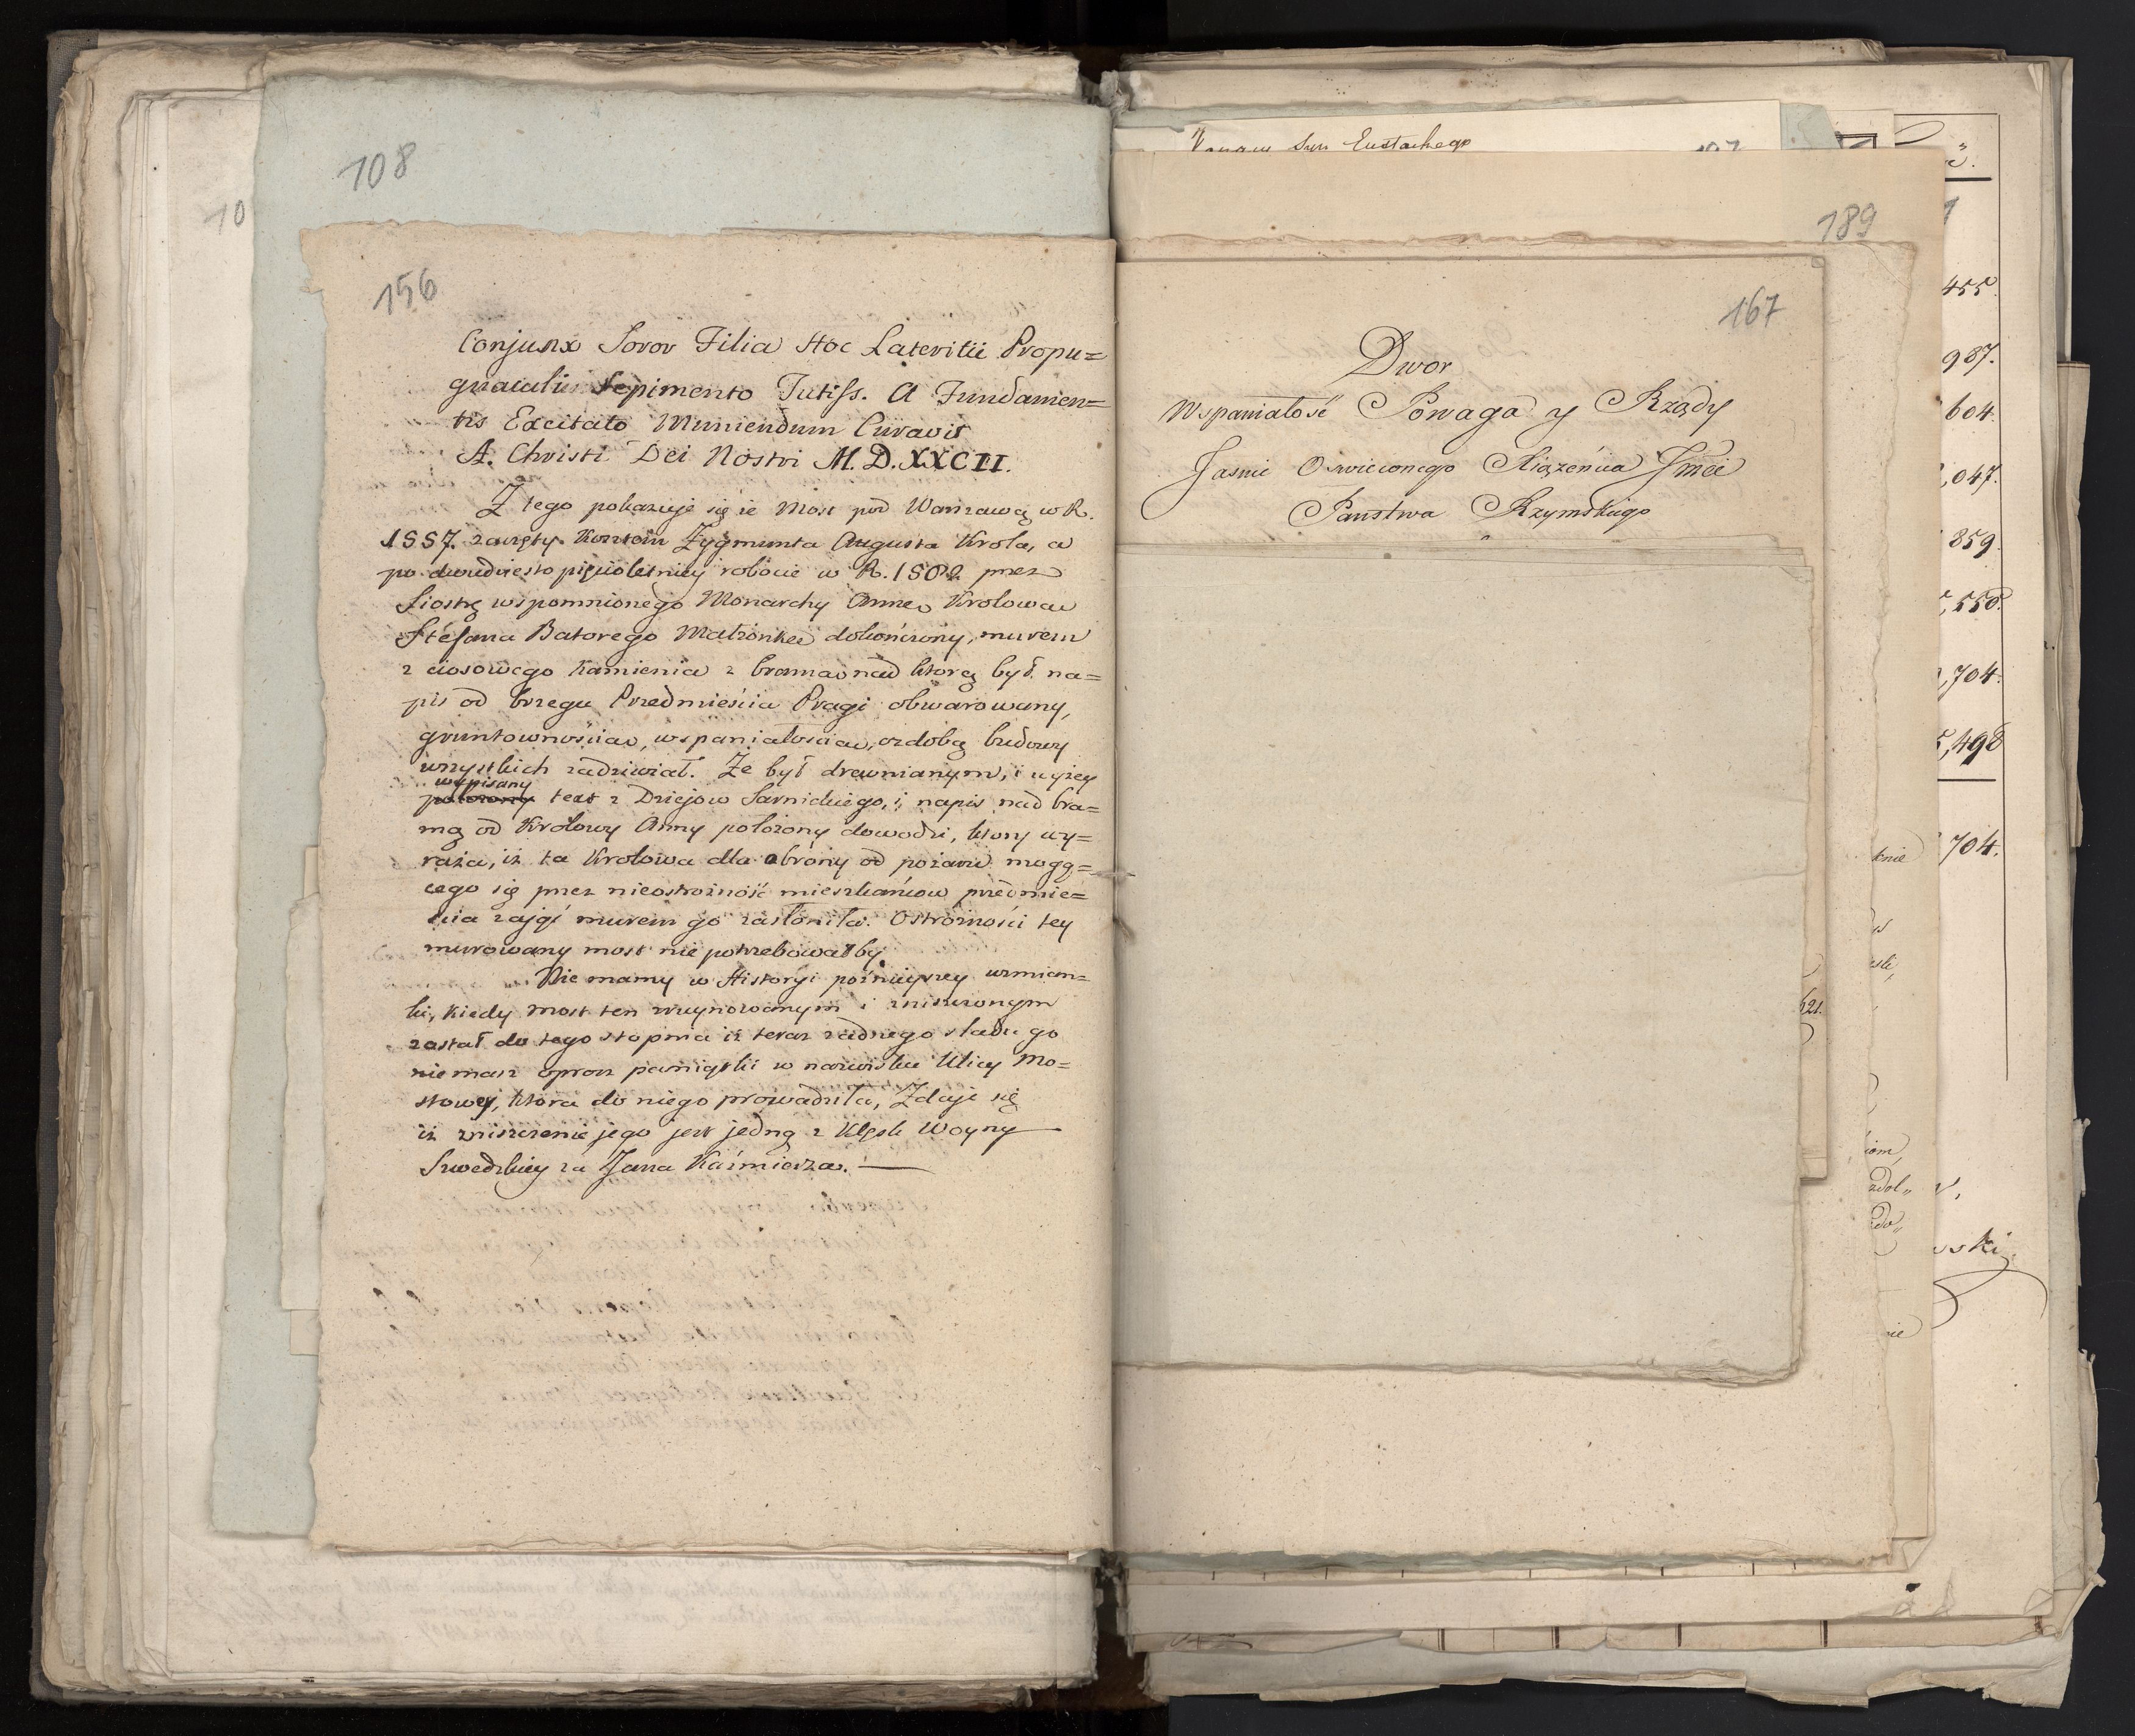 108
10
156
Conjunx Soror Filia Hoc Lateritii Propu=
gnaculi Sepimento Tutiss. A Fundamen=
tis Excitato Muniendum Curavit
A. Christi Dei Nostri M.D.XXCII.
Z tego pokazuje się że Most pod Warszawą w R.
1557. zaczęty Kosztem Zygmunta Augusta Krola, a
po dwudziesto pięcioletniey robocie w R. 1582 przez
Siostrę wspomnionego Monarchy Annę Krolowę
Stefana Batorego Małżonkę dokończony, murem
z ciosowego Kamienia z bramą nad ktorą był na=
pis od brzegu Przedmieścia Pragi obwarowany,
gruntownością, wspaniałością, ozdobą budowy
wszystkich zadziwiał. Że był drewnianym, i wyżey
wypisany
położony text z Dziejow Sarnickiego, i napis nad bra=
mą od Krolowy Anny położony dowodzi, ktory wy=
raża, iż ta Krolowa dla obrony od pożaru mogą=
cego się przez nieostrożność mieszkańcow przedmie=
ścia zająć murem go zasłoniła. Ostrożności tey
murowany most nie potrzebowałby.
Nie mamy w Historyi poźnieyszey wzmian=
ki, kiedy most ten zruynowanym i zniszczonym
został do tego stopnia iż teraz żadnego śladu go
nie masz oprocz pamiątki w nazwisku Ulicy Mo=
stowey, ktora do niego prowadziła, Zdaje się
iż zniszczenie jego jest jedną z Klęsk Woyny
Szwedzkiey za Jana Kaźmierza.
Syn Eustachego
189
167
Dwor
Wspaniałość Powaga y Rządy
Jasnie Oswieconego Xiążęńcia Jmći
Panstwa Rzymskiego
455.
987.
604.
,047.
859.
,550.
,704.
,498
704.
621.
knie
iom,
zdol„
zdo„
nie
wski